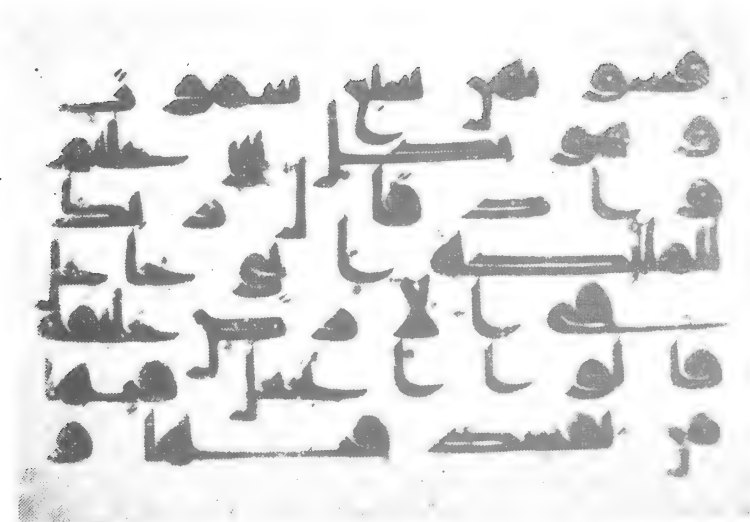 فسو يهن سبع سموت
و هو بكل شى عليم
و اذ قال ر بك
للملئكه انى جاعل
فى الا ر ض خليفه
قالو ا ا تجعل فيها
من يفسد فيها و